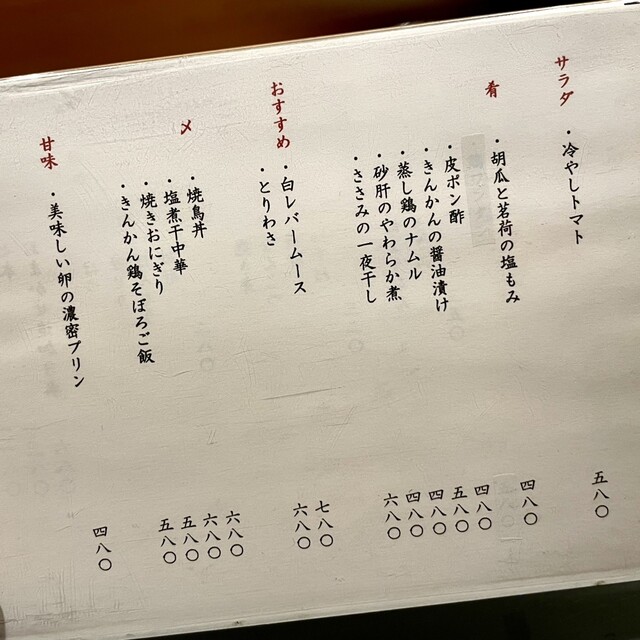 サラダ
・冷やしトマト 五八〇
肴
・胡瓜と茗荷の塩もみ 四八〇
・皮ポン酢 四八〇
・きんかんの醤油漬け 五八〇
・蒸し鶏のナムル 四八〇
・砂肝のやわらか煮 四八〇
・ささみの一夜干し 六八〇
おすすめ
・白レバームース 七八〇
・とりわさ 六八〇
〆
・焼鳥丼 六八〇
・塩煮干中華 六八〇
・焼きおにぎり 五八〇
・きんかん鶏そぼろご飯 五八〇
甘味
・美味しい卵の濃密プリン 四八〇